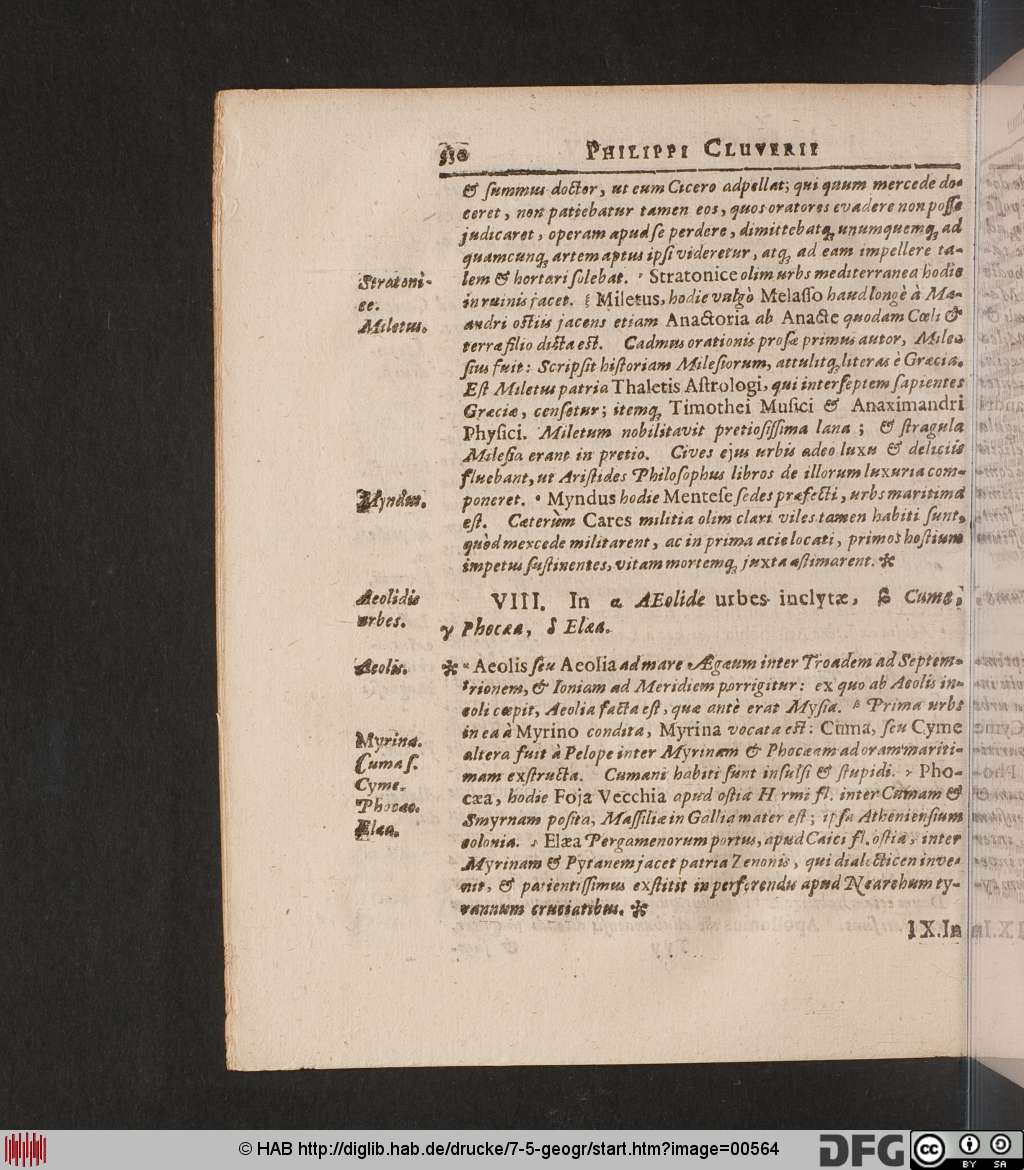 530 PHILIPPI CLUVERII
& ſummus doctor, ut eum Cicero adpellat; qui quum mercede do-
ceret, non patiebatur tamen eos, quos oratores evadere non poſſe
judicaret, operam apud ſe perdere, dimittebatq́; unumquemq́; ad
quamcunq́; artem aptus ipſi videretur, atq́; ad eam impellere ta-
lem & hortari ſolebat. Stratonice olim urbs mediterranea hodie
in ruinis jacet. Miletus, hodie vulgò Melaſſo haud longè à Mæ-
andri oſtiis jacens etiam Anactoria ab Anacte quodam Cœli &
terræ filio dicta eſt. Cadmus orationis proſæ primus autor, Mile-
ſius fuit: Scripſit hiſtoriam Mileſiorum, attulitq́; literas è Græcia.
Eſt Miletus patria Thaletis Aſtrologi, qui inter ſeptem ſapientes
Græciæ, cenſetur; itemq́; Timothei Muſici & Anaximandri
Phyſici. Miletum nobilitavit pretioſiſſima lana; & ſtragula
Mileſia erant in pretio. Cives ejus urbis adeo luxu & deliciis
fluebant, ut Ariſtides Philoſophus libros de illorum luxuria com-
poneret. Myndus hodie Menteſe ſedes præfecti, urbs maritima
eſt. Cæterùm Cares militia olim clari viles tamen habiti ſunt,
quòd mercede militarent, ac in prima acie locati, primos hoſtium
impetus ſuſtinentes, vitam mortemq́; juxta æſtimarent. *
Stratoni-
ce.
Miletus.
Myndus.
VIII. In α AEolide urbes inclytæ, β Cuma,
γ Phocæa, δ Elæa.
Aeolidis
urbes.
* α Aeolis ſeu Aeolia ad mare Ægæum inter Troadem ad Septem-
trionem, & Ioniam ad Meridiem porrigitur: ex quo ab Aeolis in-
coli cœpit, Aeolia facta eſt, quæ antè erat Myſia. β Prima urbs
in ea à Myrino condita, Myrina vocata eſt: Cuma, ſeu Cyme
altera fuit à Pelope inter Myrinam & Phocæam ad oram mariti-
mam exſtructa. Cumani habiti ſunt inſulſi & ſtupidi. γ Pho-
cæa, hodie Foja Vecchia apud oſtia Hermi fl. inter Cumam &
Smyrnam poſita, Maſſiliæ in Gallia mater eſt; ipſa Athenienſium
colonia. δ Elæa Pergamenorum portus, apud Caici fl. oſtia, inter
Myrinam & Pytanem jacet patria Zenonis, qui dialecticen inve-
nit, & patientiſſimus exſtitit in perferendis apud Nearchum ty-
rannum cruciatibus. *
Aeolis.
Myrina.
Cuma ſ.
Cyme.
Phocæa.
Elæa.
IX. In
© HAB http://diglib.hab.de/drucke/7-5-geogr/start.htm?image=00564
DFG
cc
BY SA